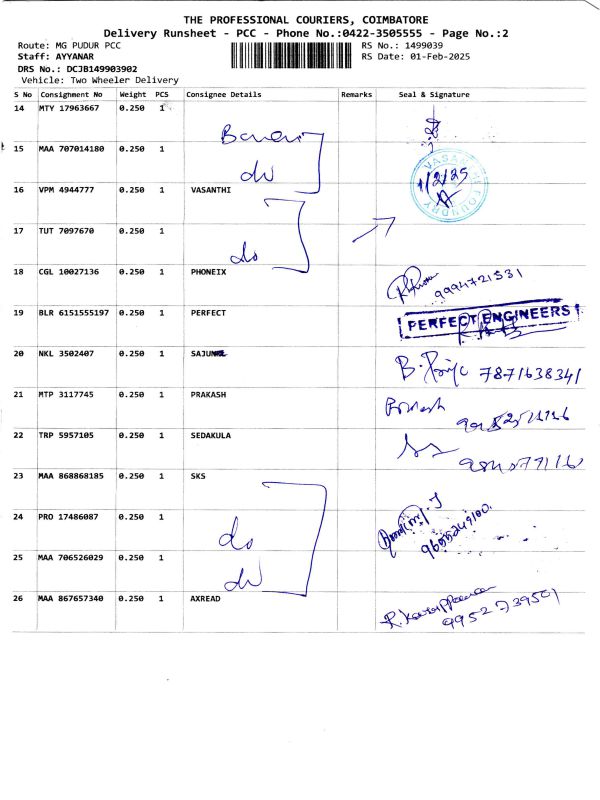 THE PROFESSIONAL COURIERS, COIMBATORE
Delivery Runsheet - PCC - Phone No.:0422-3505555 - Page No.:2
Route: MG PUDUR PCC RS No.: 1499039
Staff: AYYANAR RS Date: 01-Feb-2025
DRS No.: DCJB149903902
Vehicle: Two Wheeler Delivery
S No Consignment No Weight PCS Consignee Details Remarks Seal & Signature
14 MTY 17963667 0.250 1
15 MAA 707014180 0.250 1
VASA
1/2/25
FOUNDRY
16 VPM 4944777 0.250 1 VASANTHI
17 TUT 7097670 0.250 1
do
18 CGL 10027136 0.250 1 PHONEIX
9994721531
19 BLR 6151555197 0.250 1 PERFECT PERFECT ENGINEERS
20 NKL 3502407 0.250 1 7871638341
21 MTP 3117745 0.250 1 PRAKASH
22 TRP 5957105 0.250 1 SEDAKULA
23 MAA 868868185 0.250 1 SKS
24 PRO 17486087 0.250 1
do
25 MAA 706526029 0.250 1
26 MAA 867657340 0.250 1 AXREAD
9952739501